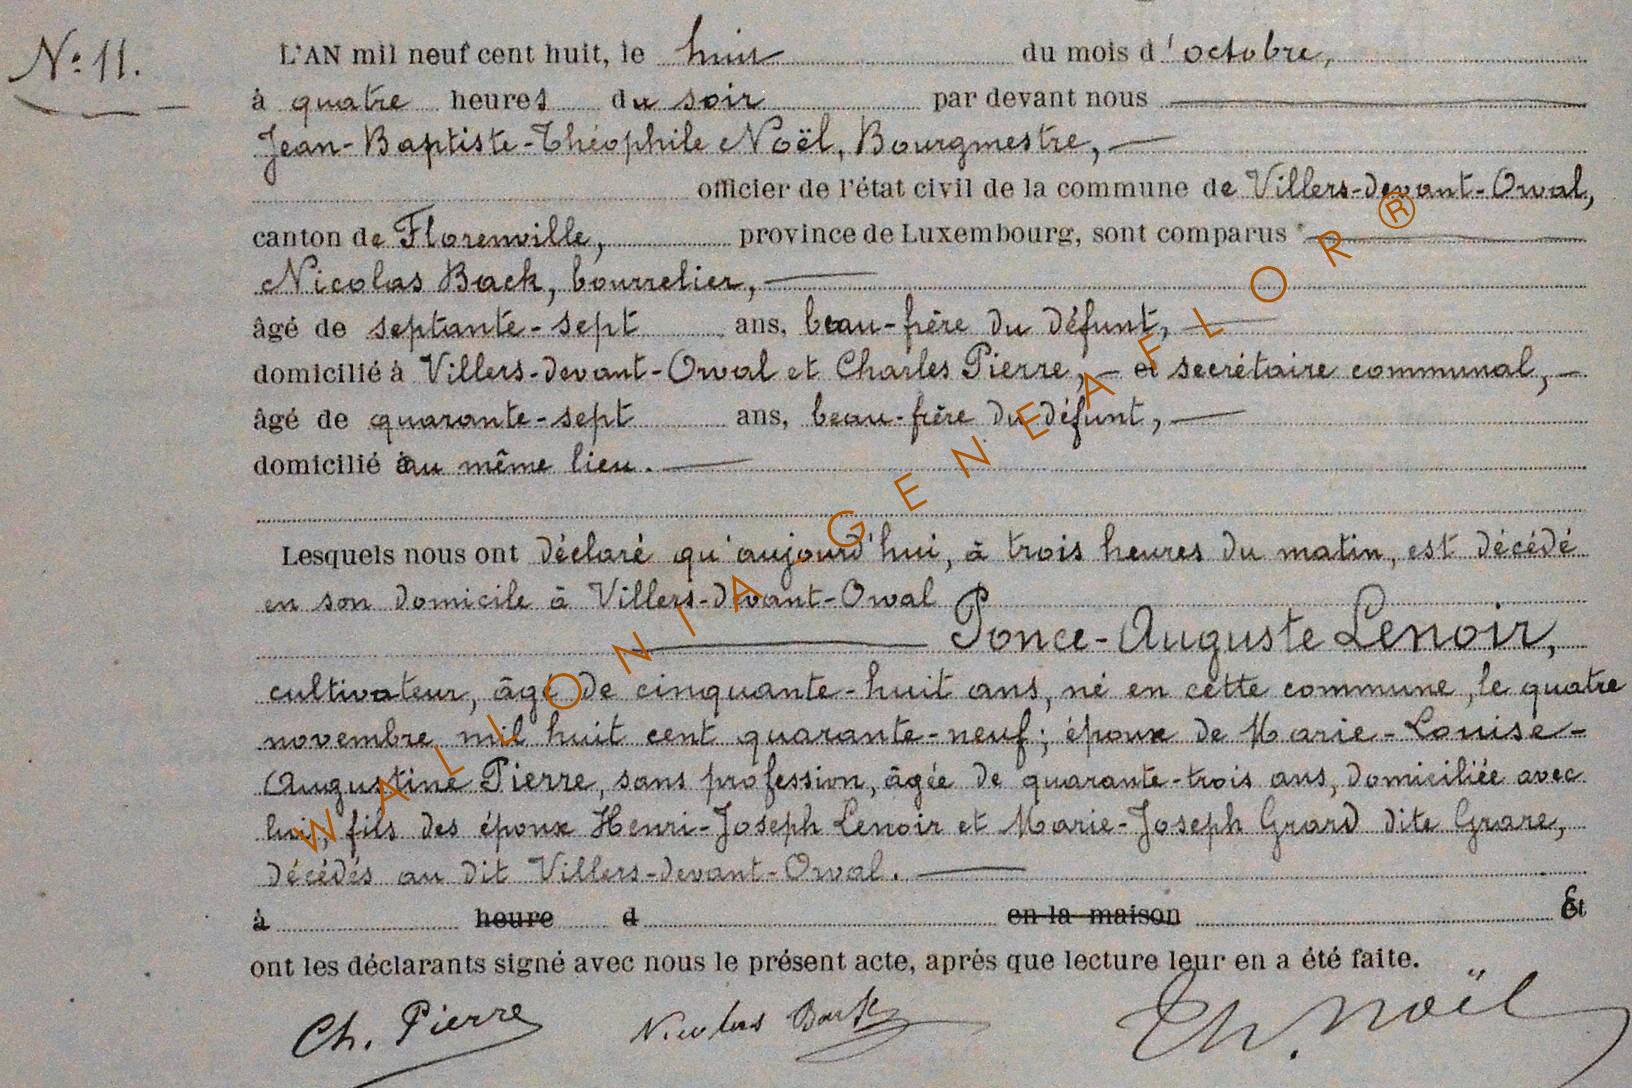 N° 11.
L'AN mil neuf cent huit, le huit du mois d'octobre,
à quatre heures du soir par devant nous
Jean-Baptiste-Théophile Noël, Bourgmestre,
officier de l'état civil de la commune de Villers-devant-Orval,
canton de Florenville, province de Luxembourg, sont comparus
Nicolas Back, bourrelier,
âgé de septante-sept ans, beau-frère du défunt,
domicilié à Villers-devant-Orval et Charles Pierre, et secrétaire communal,
âgé de quarante-sept ans, beau-frère du défunt,
domicilié au même lieu.
Lesquels nous ont déclaré qu'aujourd'hui, à trois heures du matin, est décédé
en son domicile à Villers-devant-Orval
Ponce-Auguste Lenoir,
cultivateur, âgé de cinquante-huit ans, né en cette commune, le quatre
novembre mil huit cent quarante-neuf; époux de Marie-Louise-
Augustine Pierre, sans profession, âgée de quarante-trois ans, domiciliée avec
lui, fils des époux Henri-Joseph Lenoir et Marie-Joseph Grard dite Grare,
décédés au dit Villers-devant-Orval.
à heure d en la maison Et
ont les déclarants signé avec nous le présent acte, après que lecture leur en a été faite.
Ch. Pierre Nicolas Back Th. Noël
WALLONIA-GENEAFLOR®